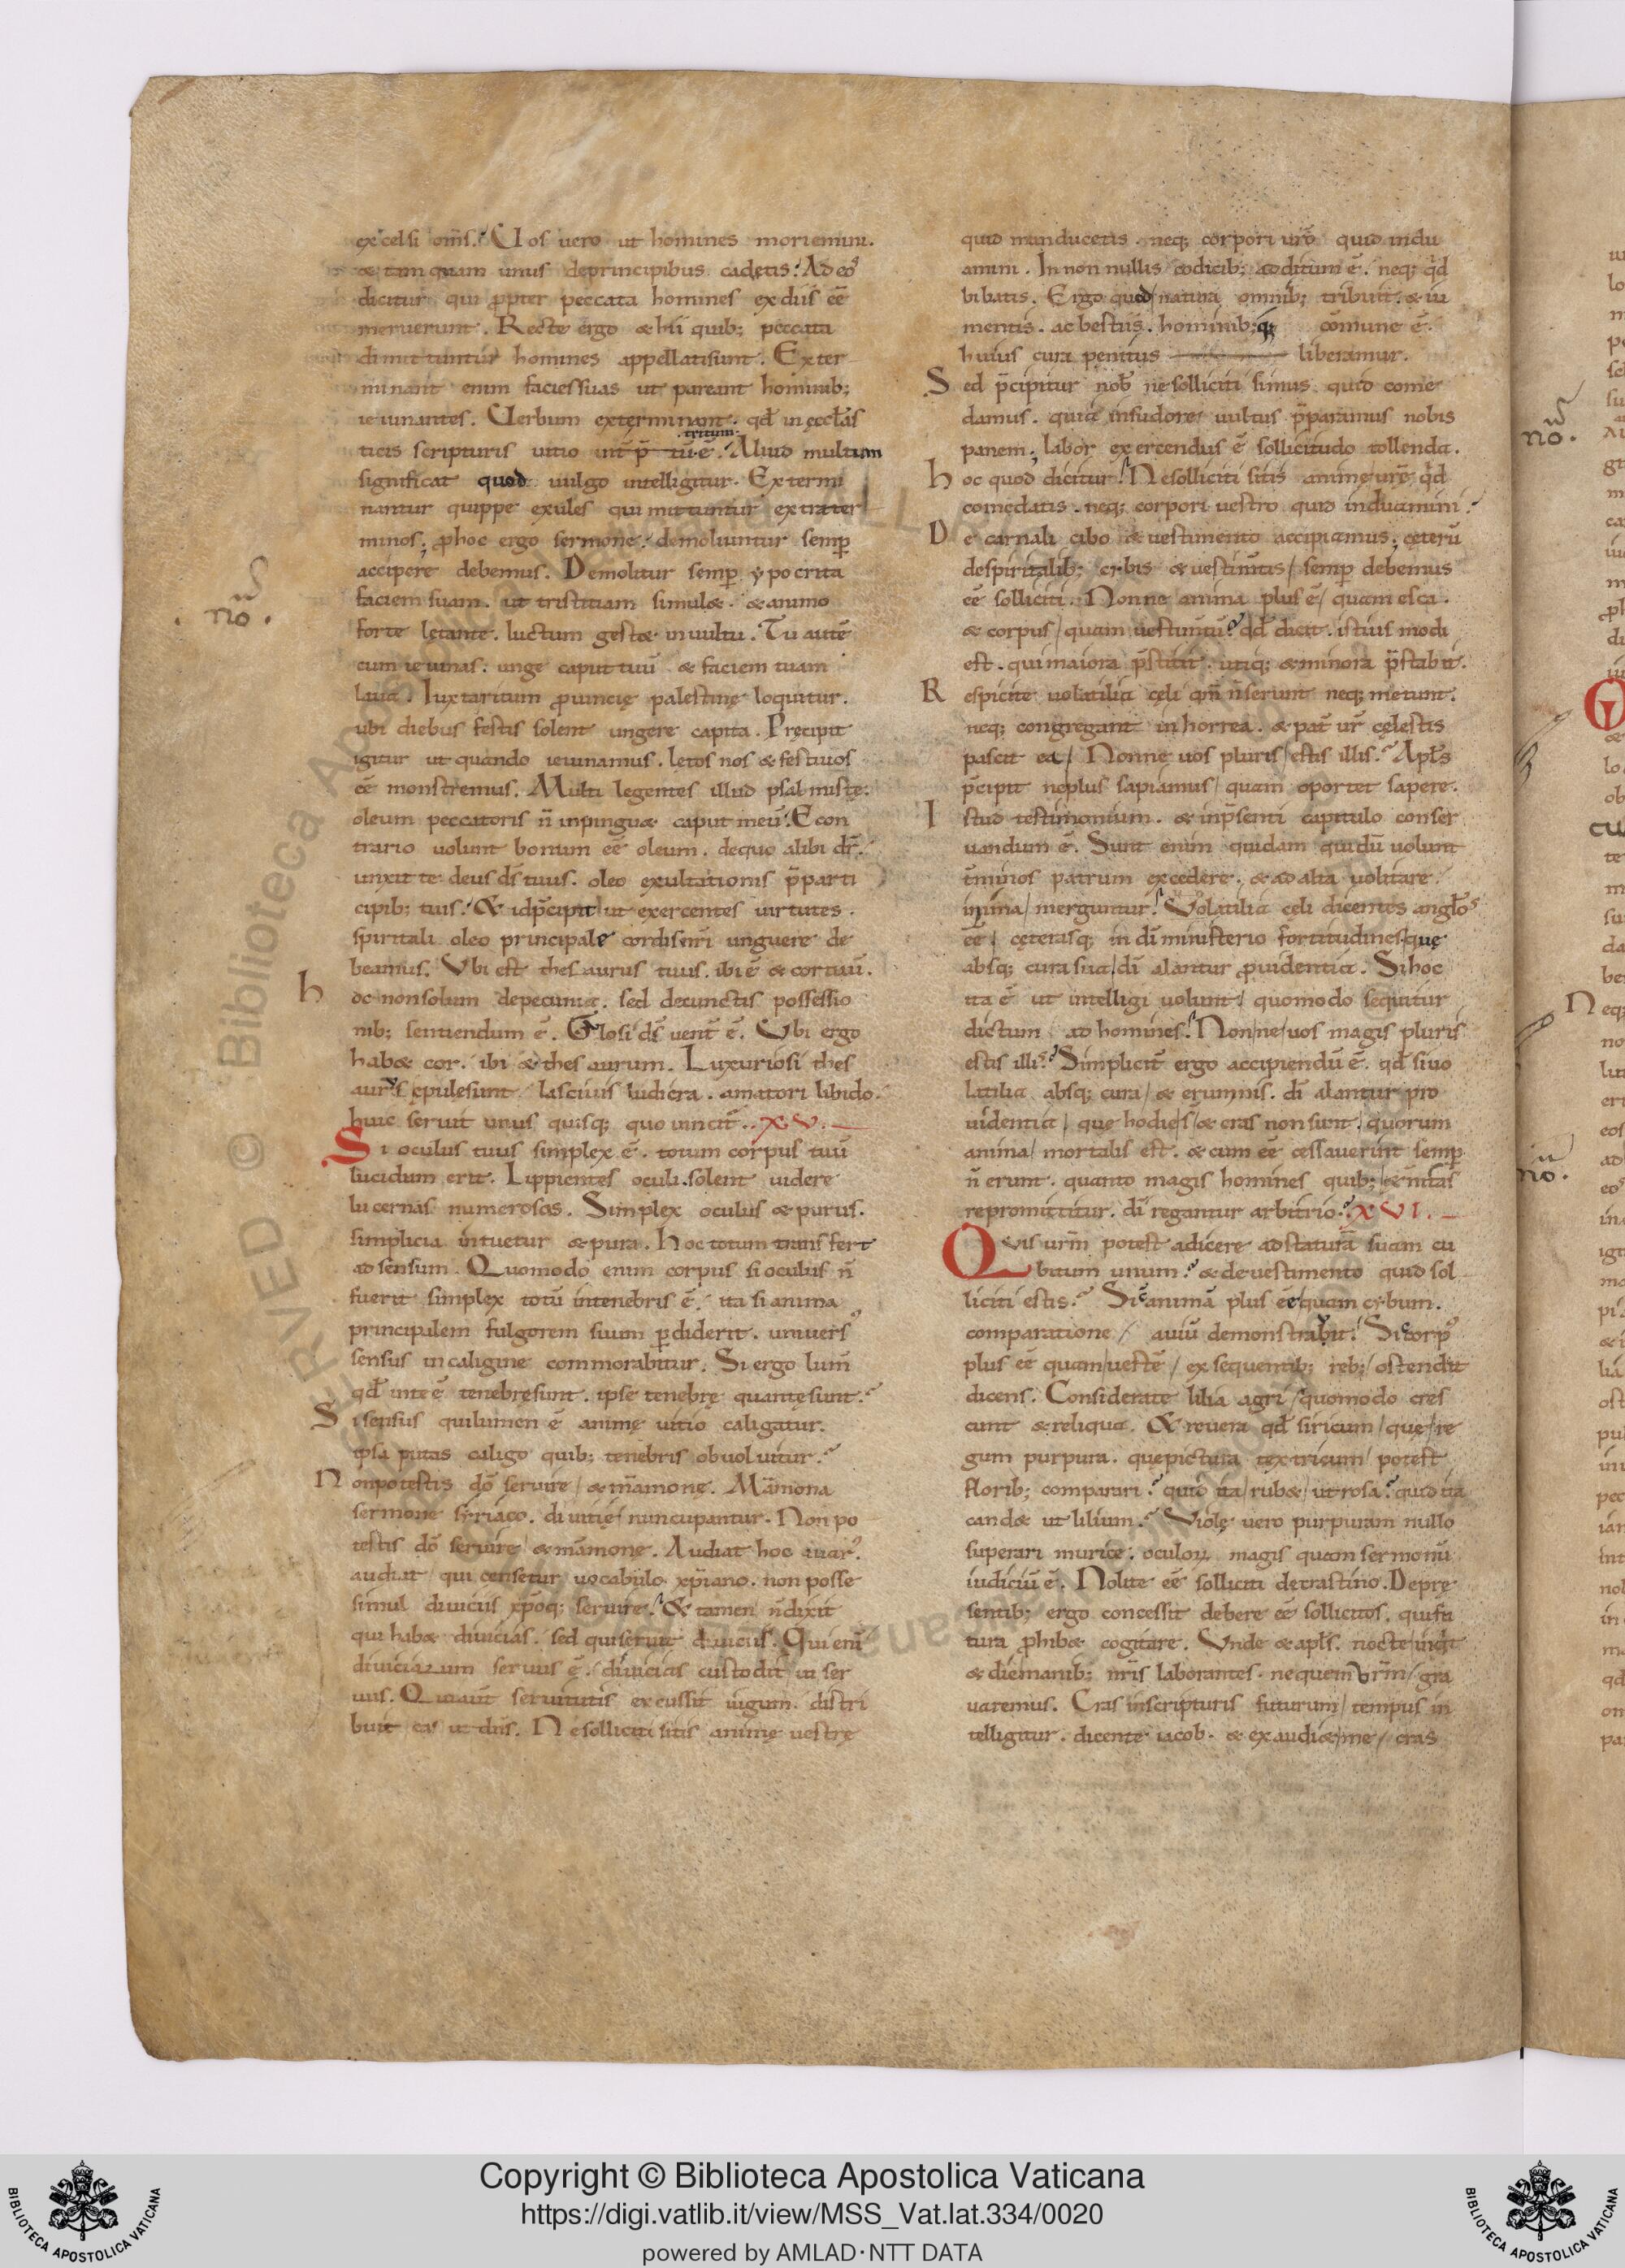 excelsi om̄s. Vos uero ut homines moriemini.
& tamquam unus deprincipibus cadetis. Ad eos
dicitur qui ꝓpter peccata homines exdiis eē
meruerunt. Recte ergo & hii quib; peccata
dimittuntur homines appellatisunt. Exter
minant enim faciessuas ut pareant hominib;
ieiunantes. Verbum exterminant. qd̄ in ęcclas
ticis scripturis uitio
tritum
Aliud multum
significat quod uulgo intelligitur. Extermi
nantur quippe exules qui mittuntur extrater
minos; ꝓhoc ergo sermone. demoliuntur semꝑ
accipere debemus. Demolitur semꝑ ypocrita
faciem suam. ut tristitiam simul&. & animo
no.
forte lętante. luctum gest& inuultu. Tu autē
cum ieiunas. unge caput tuū & faciem tuam
laua. Iuxtaritum ꝓuincię palestinę loquitur.
ubi diebus festis solent ungere capita. Pręcipit
igitur ut quando ieiunamus. letos nos & festiuos
eē monstremus. Multi legentes illud psalmistę.
oleum peccatoris n̄ inpingu& caput meū. Econ
trario uolunt bonum eē oleum. dequo alibi dr̄.
unxit te deus ds̄ tuus. oleo exultationis p̄parti
cipib; tuis. & idp̄cipit ut exercentes uirtutes.
spiritali oleo principale cordisnr̄i unguere de
beamus. Vbi est thesaurus tuus. ibi ē & cortuū.
hoc nonsolum depecunia. sed decunctis possessio
nib; sentiendum ē. Glosi ds̄ uent̄ ē. Vbi ergo
hab& cor. ibi & thesaurum. Luxuriosi thes
aurus ępulęsunt lasciuis ludicra. amatori libido.
huic seruit unus quisq; quo uincit̄. XV.
Si oculus tuus simplex ē. totum corpus tuū
lucidum erit. Lippientes oculi solent uidere
lucernas numerosas. Simplex oculus & purus.
simplicia intuetur & pura. Hoc totum transfert
ad sensum. Quomodo enim corpus si oculus n̄
fuerit simplex totū intenebris ē. ita si anima
principalem fulgorem suum ꝑdiderit. uniuers
sensus incaligine commorabitur. Si ergo lum̄
qd̄ inte ē tenebręsunt. ipse tenebrę quantęsunt.
Sisensus quilumen ē animę uitio caligatur.
ipsa putas caligo quib; tenebris obuoluitur.
Nonpotestis dō seruire & māmonę. Māmona
sermone siriaco. diuitię nuncupantur. Non po
testis dō seruire & māmonę. Audiat hoc auar.
audiat qui censetur uocabulo xp̄iano. non posse
simul diuiciis xp̄oq; seruire. & tamen n̄dixit
qui hab& diuicias. sed quiseruit diuiciis. Qui enī
diuiciarum seruus ē. diuicias custodit ut ser
uus. Quiaut̄ seruitutis excussit iugum. distri
buit eas ut dn̄s. Nesolliciti sitis animę uestrę
quid manducetis. neq; corpori ur̄o quid indu
amini. In non nullis codicib; additum ē. neq; qd
bibatis. Ergo quod natura omnib; tribuit. & iu
mentis. ac bestiis. hominib;q; cōmune ē.
huius cura penitus liberamur.
Sed p̄cipitur nob̄ ne solliciti simus quid come
damus. quia insudore uultus p̄paramus nobis
panem; labor exercendus ē sollicitudo tollenda.
hoc quod dicitur. Nesolliciti sitis animę ur̄ę qd
comędatis. neq; corpori uestro quid induamini.
De carnali cibo & uestimento accipiamus; cęterū
despiritalib; cibis & uestim̄tis semꝑ debemus
eē solliciti. Nonne anima plus ē quam esca.
& corpus quam uestim̄tū. qd̄ dicit. istius modi
est. quimaiora p̄stitit. utiq; & minora p̄stabit.
Respicite uolatilia cęli qm̄ n̄serunt neq; metunt.
neq; congregant in horrea. & pat̄ ur̄ cęlestis
pascit ea. Nonne uos pluris estis illis. Apl̄s
p̄cipit neplus sapiamus quam oportet sapere.
Istud testimonium. & inp̄senti capitulo conser
uandum ē. Sunt enim quidam quidū uolunt
t̄minos patrum excedere. & ad alta uolitare.
inima merguntur. Volatilia cęli dicentes anglos
eē. cęterasq; in dī ministerio fortitudines quę
absq; cura sua dī alantur ꝓuidentia. Sihoc
ita ē ut intelligi uolunt quomodo sequitur
dictum ad homines. Nonne uos magis pluris
estis illis. Simplicit̄ ergo accipiendū ē. qd̄ siuo
latilia absq; cura & erumnis. dī alantur pro
uidentia quę hodie s̄ & cras non sunt. quorum
anima mortalis est. & cum eē cessauerint semꝑ
n̄ erunt. quanto magis homines quib; &n̄itas
repromittitur. dī regantur arbitrio. XVI.
Quis ur̄m potest adicere adstaturā suam cu
bitum unum. & deuestimento quid sol
liciti estis. Si animā plus eē quam cybum.
comparatione auiū demonstrabit. Si corp
plus eē quam uestē exsequentib; reb; ostendit
dicens. Considerate lilia agri quomodo cres
cunt & reliqua. & reuera qd̄ siricum quę re
gum purpura. quępictura textricum potest
florib; comparari. quid ita rub& ut rosa. quid ita
cand& ut lilium. Violę uero purpuram nullo
superari murice. oculoꝝ magis quam sermonū
iudiciū ē. Nolite eē solliciti decrastino. Deprę
sentib; ergo concessit debere eē sollicitos. quifu
tura ꝓhib& cogitare. Vnde & apl̄s. nocte
& diemanib; nr̄is laborantes. nequem ur̄m gra
uaremus. Cras inscripturis futurum tempus in
telligitur. dicente iacob. & exaudi& me cras
Copyright © Biblioteca Apostolica Vaticana
https://digi.vatlib.it/view/MSS_Vat.lat.334/0020
powered by AMLAD·NTT DATA
BIBLIOTECA APOSTOLICA VATICANA
BIBLIOTECA APOSTOLICA VATICANA